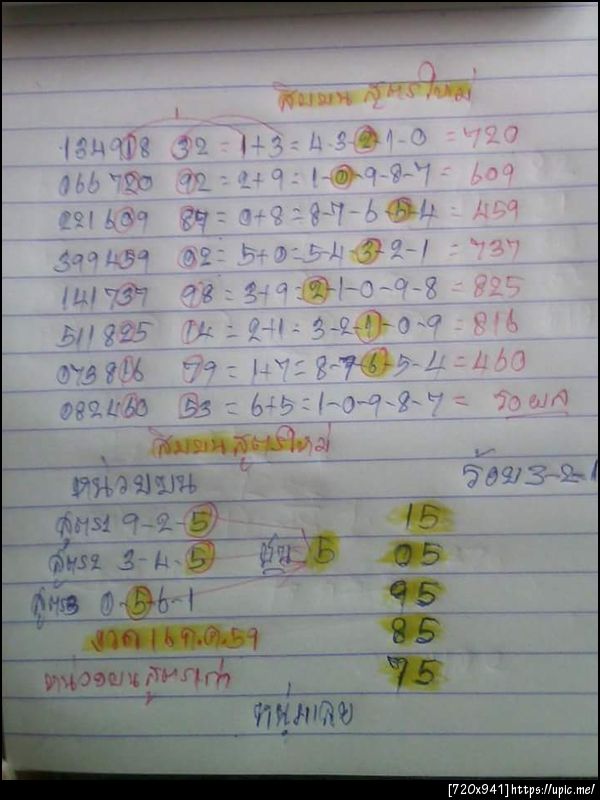 สิบบน สูตรใหม่
134918 32 = 1+3 = 4-3-2-1-0 = 720
066720 92 = 2+9 = 1-0-9-8-7 = 609
221609 87 = 0+8 = 8-7-6-5-4 = 459
399459 02 = 5+0 = 5-4-3-2-1 = 737
141737 98 = 3+9 = 2-1-0-9-8 = 825
511825 14 = 2+1 = 3-2-1-0-9 = 816
073816 79 = 1+7 = 8-7-6-5-4 = 460
082460 53 = 6+5 = 1-0-9-8-7 = รอผล
สิบบน สูตรใหม่
หน่วยบน ร้อย 3-2-1
สูตร1 9-2-5 15
สูตร2 3-4-5 ชน 5 05
สูตร3 0-5-6-1 95
งวด 16 ก.ค. 59 85
หน่วยบน สูตรเก่า 75
หนุ่มเลย
[720x941]https://upic.me/